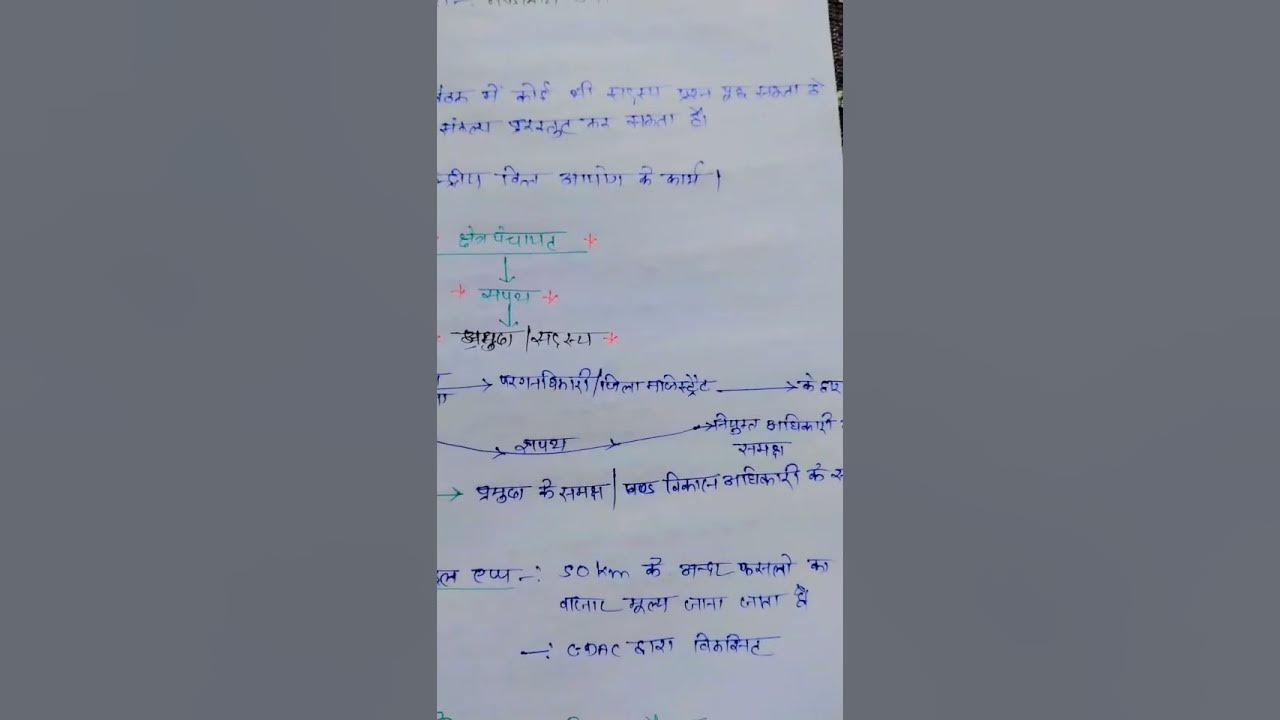 में कोई भी सदस्य प्रश्न पूछ सकता है
संकल्प प्रस्तुत कर सकता है।
वित्त आयोग के कार्य |
क्षेत्र पंचायत
शपथ
प्रमुख / सदस्य
परगनाधिकारी / जिला मजिस्ट्रेट → के द्वा
शपथ → नियुक्त अधिकारी
समक्ष
→ प्रमुख के समक्ष | खण्ड विकास अधिकारी के स
एप्प -: 50 km के अन्दर फसलो का
बाजार मूल्य जाना जाता है
-: CDAC द्वारा विकसित